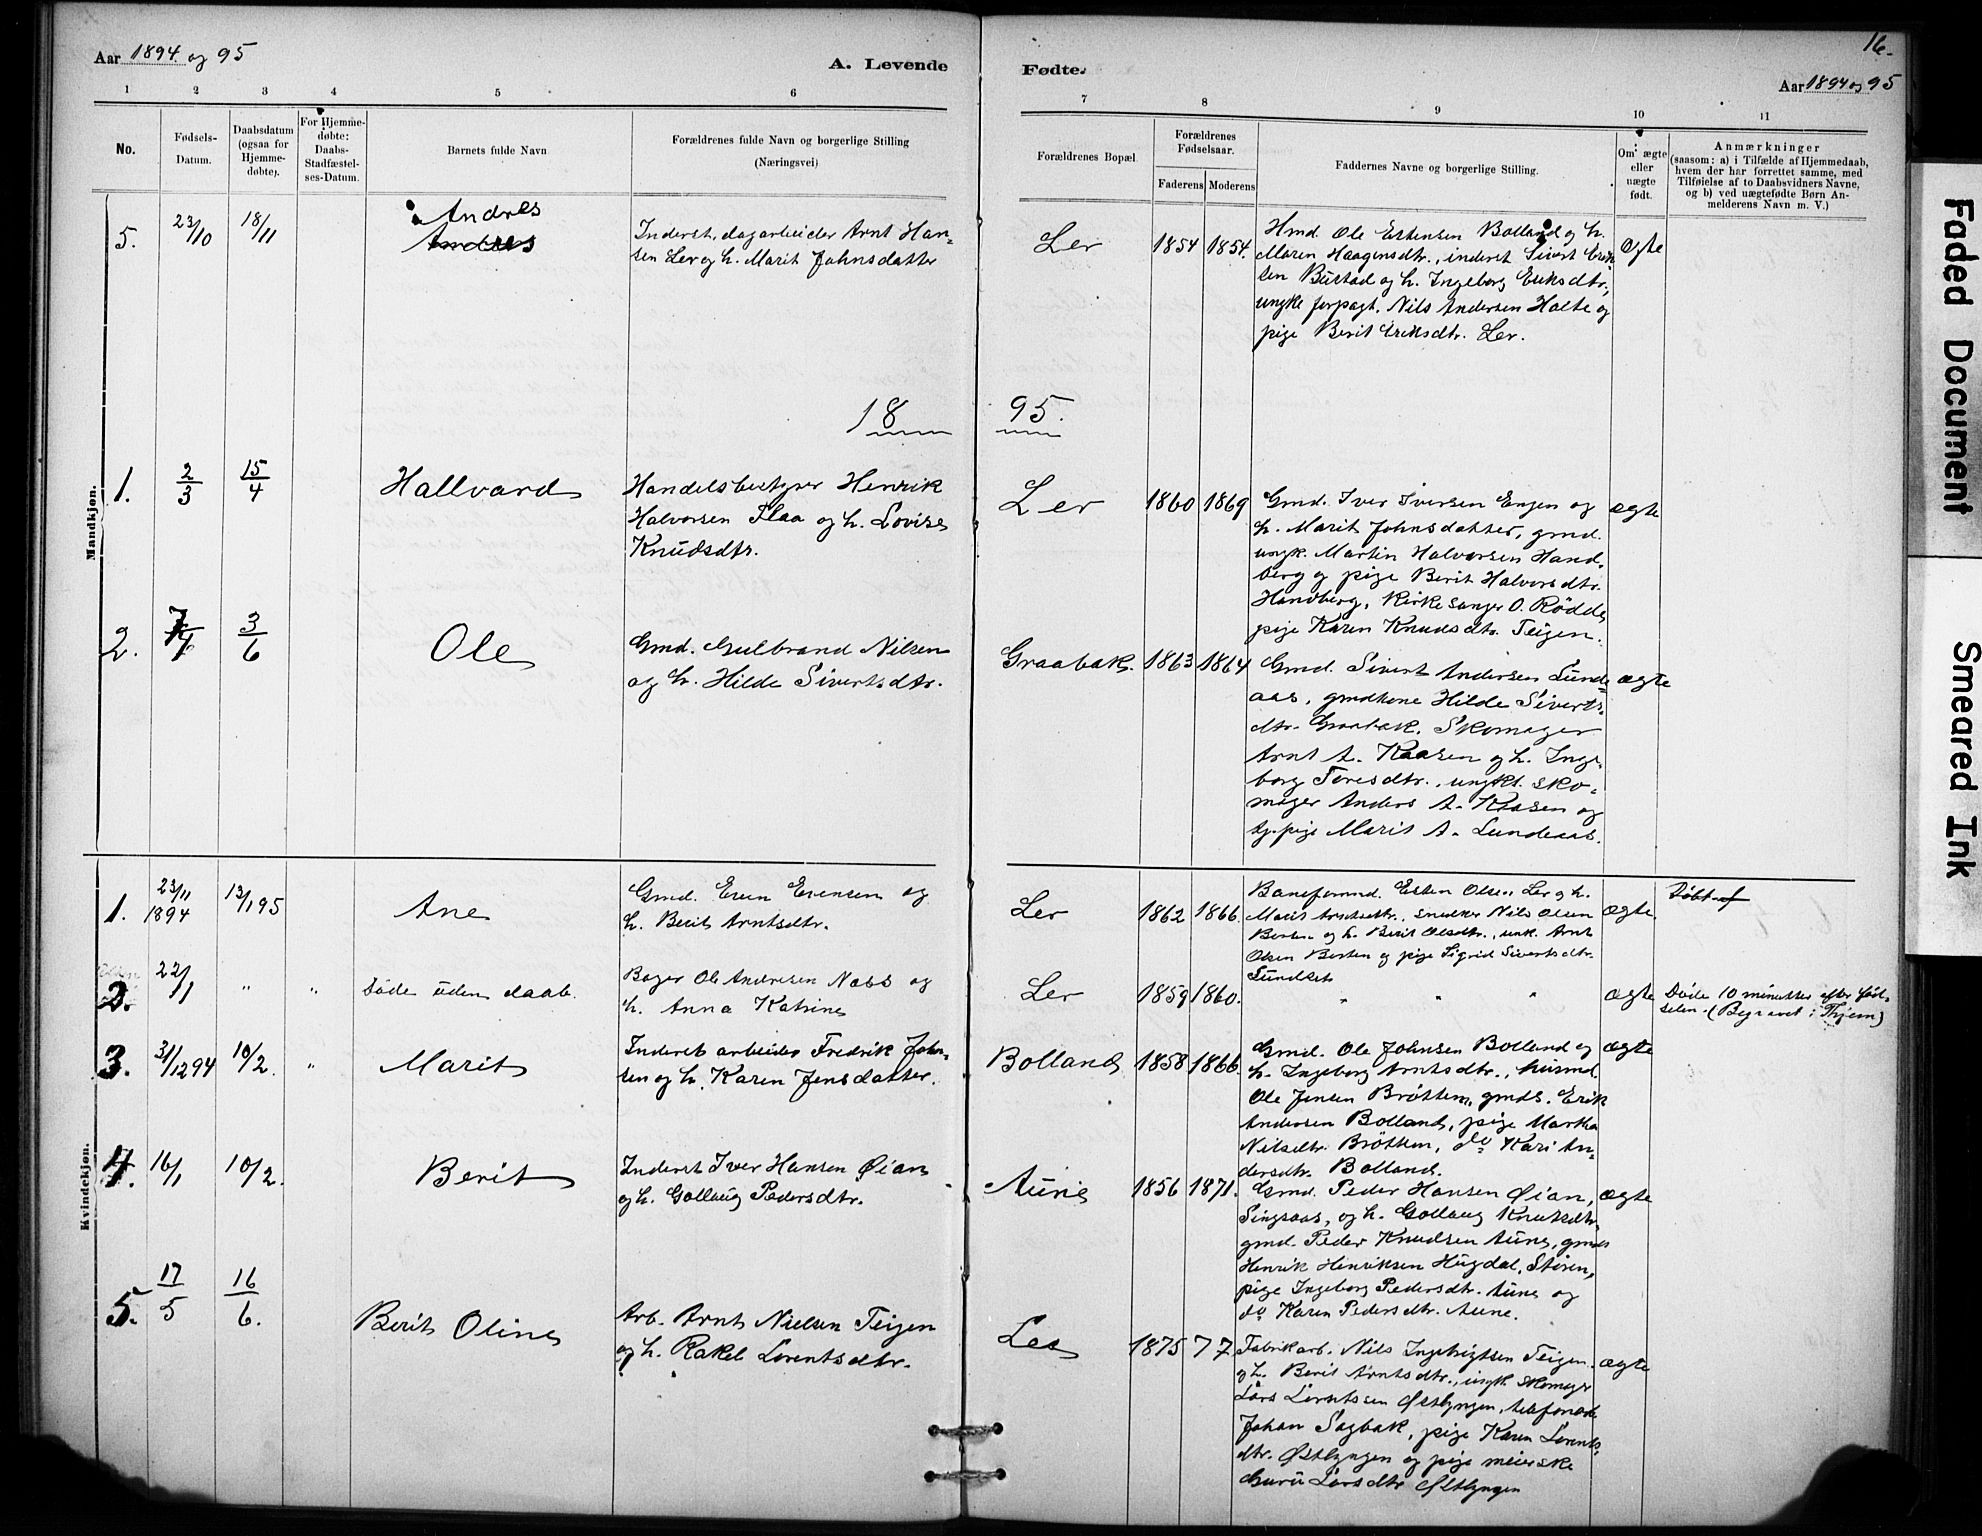 Aar 1894 og 95
A. Levende
Fødte.
16.
Aar 1894 og 95
1 2 3 4 5 6
7 8 9 10 11
No.
Fødsels-
Datum.
Daabsdatum
(ogsaa for
Hjemme-
døbte).
For Hjemme-
døbte:
Daabs-
Stadfæstel-
ses-Datum.
Barnets fulde Navn
Forældrenes fulde Navn og borgerlige Stilling
(Næringsvei)
Forældrenes Bopæl.
Forældrenes
Fødselsaar.
Faderens Moderens
Faddernes Navne og borgerlige Stilling.
Om ægte
eller
uægte
født.
Anmærkninger
(saasom: a) i Tilfælde af Hjemmedaab,
hvem der har forrettet samme, med
Tilføielse af to Daabsvidners Navne,
og b) ved uægtefødte Børn An-
melderens Navn m. V.)
Mandkjøn.
5. 23/10 18/11
Andres
Andres
Inderst, dagarbeider Arnt Han-
sen Ler og h. Marit Johnsdatter
Ler 1854 1854.
Hmd. Ole Estensen Bolland og h.
Maren Haagensdtr., inderst Sivert Erik-
sen Bustad og h. Ingeborg Eriksdtr.,
ungke forpagt. Nils Andersen Holte og
pige Berit Eriksdtr. Ler.
ægte
18 95.
1. 2/3 15/4 Hallvard
Handelsbestyrer Henrik
Halvorsen Flaa og h. Lovise
Knudsdtr.
Ler 1860 1869
Gmd. Iver Iversen Engen og
h. Marit Johnsdatter, gmd.
ungk. Martin Halvorsen Hand-
berg og pige Berit Halvorsdtr.
Handberg, Kirkesanger O. Rødde,
pige Karen Knudsdtr. Teigen.
ægte
2. 7/4 3/6 Ole
Gmd. Gulbrand Nilsen
og h. Hilde Sivertsdtr.
Graabak. 1863 1864
Gmd. Sivert Andersen Lunde-
aas, gmdkone Hilde Siverts-
dtr. Graabak, Skomager
Arnt A. Kaasen og h. Inge-
borg Toresdtr., ungkl. sko-
mager Anders A. Kaasen og
tj.pige Marit A. Lundeaas.
ægte
Kvindekjøn.
1. 23/11
1894
13/1 95
Ane
Gmd. Even Evensen og
h. Berit Arntsdtr.
Ler 1862 1866.
Baneformnd. Esten Olsen Ler og h.
Marit Arntsdtr., snedker Nils Olsen
Borten og h. Berit Olsdtr., unk. Arnt
Olsen Borten og pige Sigrid Sivertsdtr.
Lundset
ægte.
Døbt af
2. 22/1 " "
Døde uden daab.
Bager Ole Andresen Næss og
h. Anna Katrine
Ler 1859 1860. " " "
ægte
Døde 10 minutter efter fød-
selen. (Begravet i Thjem)
3. 31/12 94 10/2. " Marit
Inderst arbeider Fredrik John-
sen og h. Karen Jensdatter.
Bolland 1858 1866.
Gmd. Ole Johnsen Bolland og
h. Ingeborg Arntsdtr., husmd.
Ole Jensen Brøttem, gmds. Erik
Andersen Bolland, pige Martha
Nilsdtr. Brøttem, do Kari An-
dersdtr. Bolland.
ægte
4. 16/1 10/2. Berit
Inderst Iver Hansen Øian
og h. Gollaug Pedersdtr.
Aune 1856 1871.
Gmd. Peder Hansen Øian,
Singsaas, og h. Gollaug Knutsdtr.
gmd. Peder Knudsen Aune, gmds
Henrik Henriksen Hugdal, Støren,
pige Ingeborg Pedersdtr. Aune og
do Karen Pedersdtr. Aune.
ægte
5. 17/5 16/6. Berit Oline
Arb. Arnt Nielsen Teigen
og h. Rakel Lorentsdtr.
Ler 1875 77
Fabrikarb. Nils Ingebrigtsen Teigen
og h. Berit Arntsdtr., ungk. skomager
Lars Lorntssen Østlyngen, telefonarb.
Johan Sagbak, pige Karen Lorents-
dtr. Østlyngen og pige meierske
Guru Larsdtr Østlyngen
ægte
Faded Document
Smeared Ink